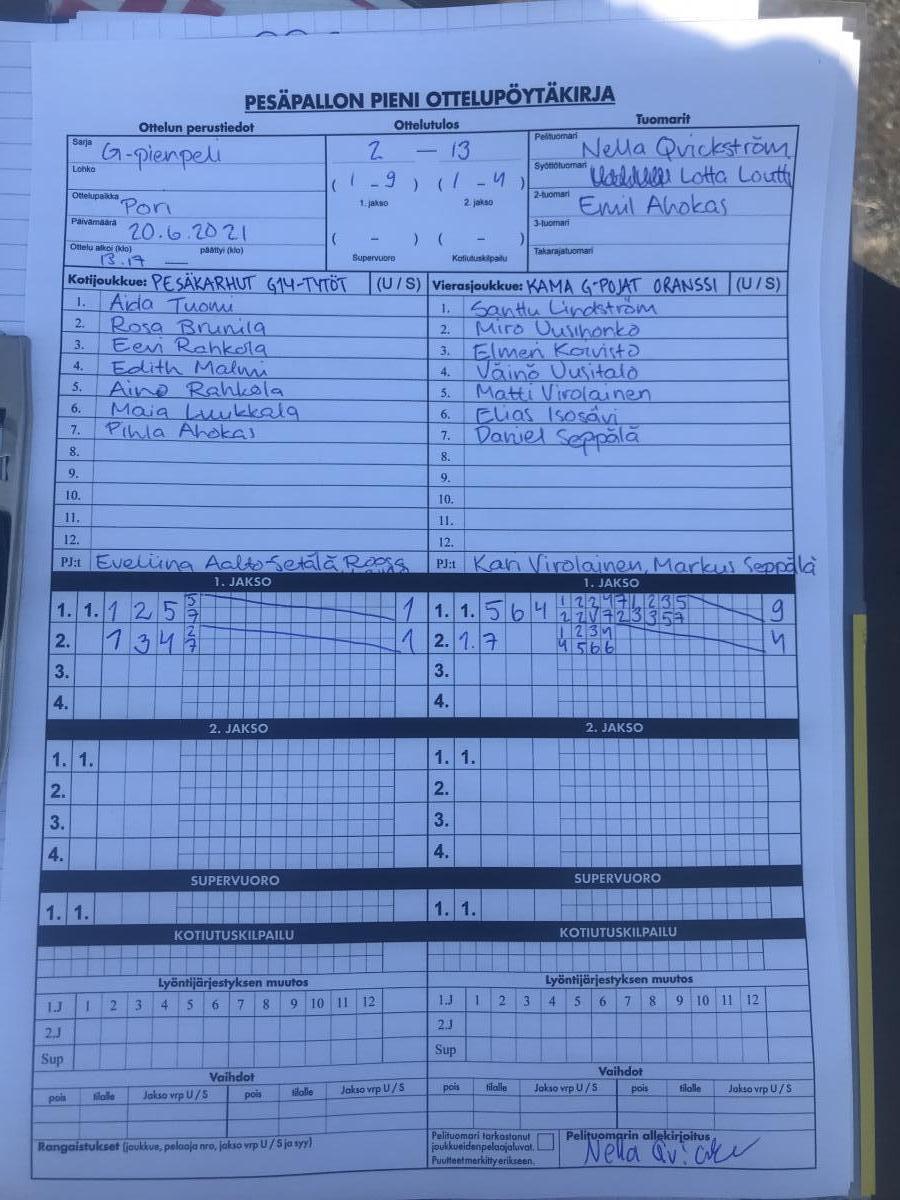 PESÄPALLON PIENI OTTELUPÖYTÄKIRJA
Ottelun perustiedot
Ottelutulos
Tuomarit
Sarja G-pienpeli
Lohko
Ottelupaikka Pori
Päivämäärä 20.6.2021
Ottelu alkoi (klo) päättyi (klo)
13.17 —
2 — 13
( 1 - 9 ) ( 1 - 4 )
1. jakso 2. jakso
( - ) ( - )
Supervuoro Kotiutuskilpailu
Pelituomari Nella Qvickström
Syöttötuomari Lotta Loutti
2-tuomari Emil Ahokas
3-tuomari
Takarajatuomari
Kotijoukkue: PESÄKARHUT G14-TYTÖT (U / S)
1. Aida Tuomi
2. Rosa Brunila
3. Eevi Rahkola
4. Edith Malmi
5. Aino Rahkola
6. Maia Luukkala
7. Pihla Ahokas
8.
9.
10.
11.
12.
PJ:t Eveliina Aalto-Setälä
Vierasjoukkue: KAMA G-POJAT ORANSSI (U / S)
1. Santtu Lindström
2. Miro Uusihonko
3. Elmeri Koivisto
4. Väinö Uusitalo
5. Matti Virolainen
6. Elias Isosävi
7. Daniel Seppälä
8.
9.
10.
11.
12.
PJ:t Kari Virolainen, Markus Seppälä
1. JAKSO
1. 1. 1 2 5 5 7 1
2. 1 3 4 2 7 1
3.
4.
1. JAKSO
1. 1. 5 6 4 1 2 2 4 7 1 2 3 5 9
2 3 3 5 7
2. 1. 7 1 2 3 4 4
4 5 6 6
3.
4.
2. JAKSO
1. 1.
2.
3.
4.
2. JAKSO
1. 1.
2.
3.
4.
SUPERVUORO
1. 1.
SUPERVUORO
1. 1.
KOTIUTUSKILPAILU
KOTIUTUSKILPAILU
Lyöntijärjestyksen muutos
1.J 1 2 3 4 5 6 7 8 9 10 11 12
2.J
Sup
Lyöntijärjestyksen muutos
1.J 1 2 3 4 5 6 7 8 9 10 11 12
2.J
Sup
Vaihdot
pois tilalle Jakso vrp U / S pois tilalle Jakso vrp U / S
Vaihdot
pois tilalle Jakso vrp U / S pois tilalle Jakso vrp U / S
Rangaistukset (joukkue, pelaaja nro, jakso vrp U / S ja syy)
Pelituomari tarkastanut
joukkueidenpelaajaluvat.
Puutteetmerkittyerikseen.
Pelituomarin allekirjoitus
Nella